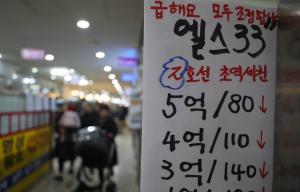 급해요 모두 조정함
엘스33
2호선 초역세권
5억/80↓
4억/110↓
3억/140↓